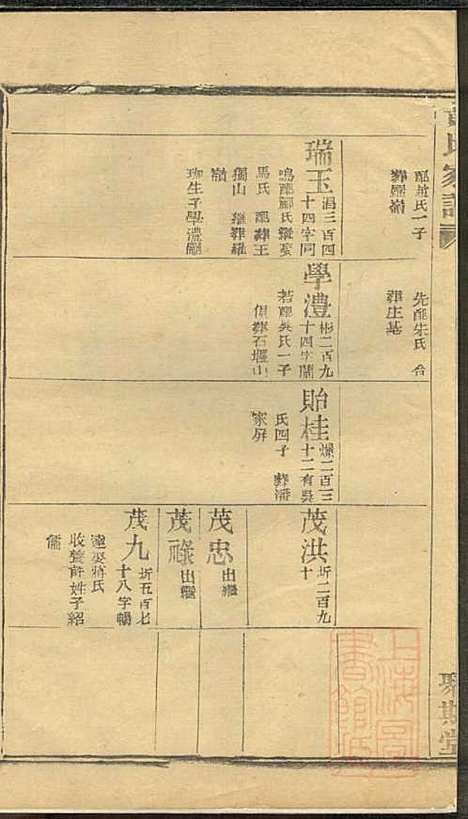 氏家譜
聚斯堂
配趙氏一子
葬屏嶺
瑞玉 潟三百四
十四字同
鳴配酈氏繼娶
馬氏 配葬王
獨山 繼葬雞
嶺
珈生子學澧嗣
先配朱氏 合
葬生基
學澧 彬二百九
十四字蘭
若配吳氏一子
俱葬石堰山
貽桂 燦二百三
十二有吳
氏四子 葬潘
家屏
茂洪 圻二百九
十
茂忠 出繼
茂祿 出繼
茂九 圻五百七
十八字暢
達娶蔣氏
收養許姓子紹
儒
上海
書館